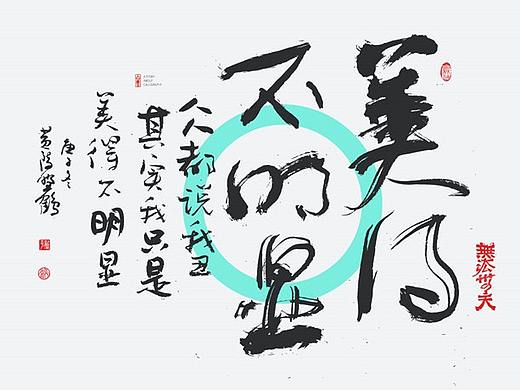 美得
不明显
人人都说我丑
其实我只是
美得不明显
庚子冬
黄陵野鹤
A STORY
ABOUT
CALLIGRAPHY